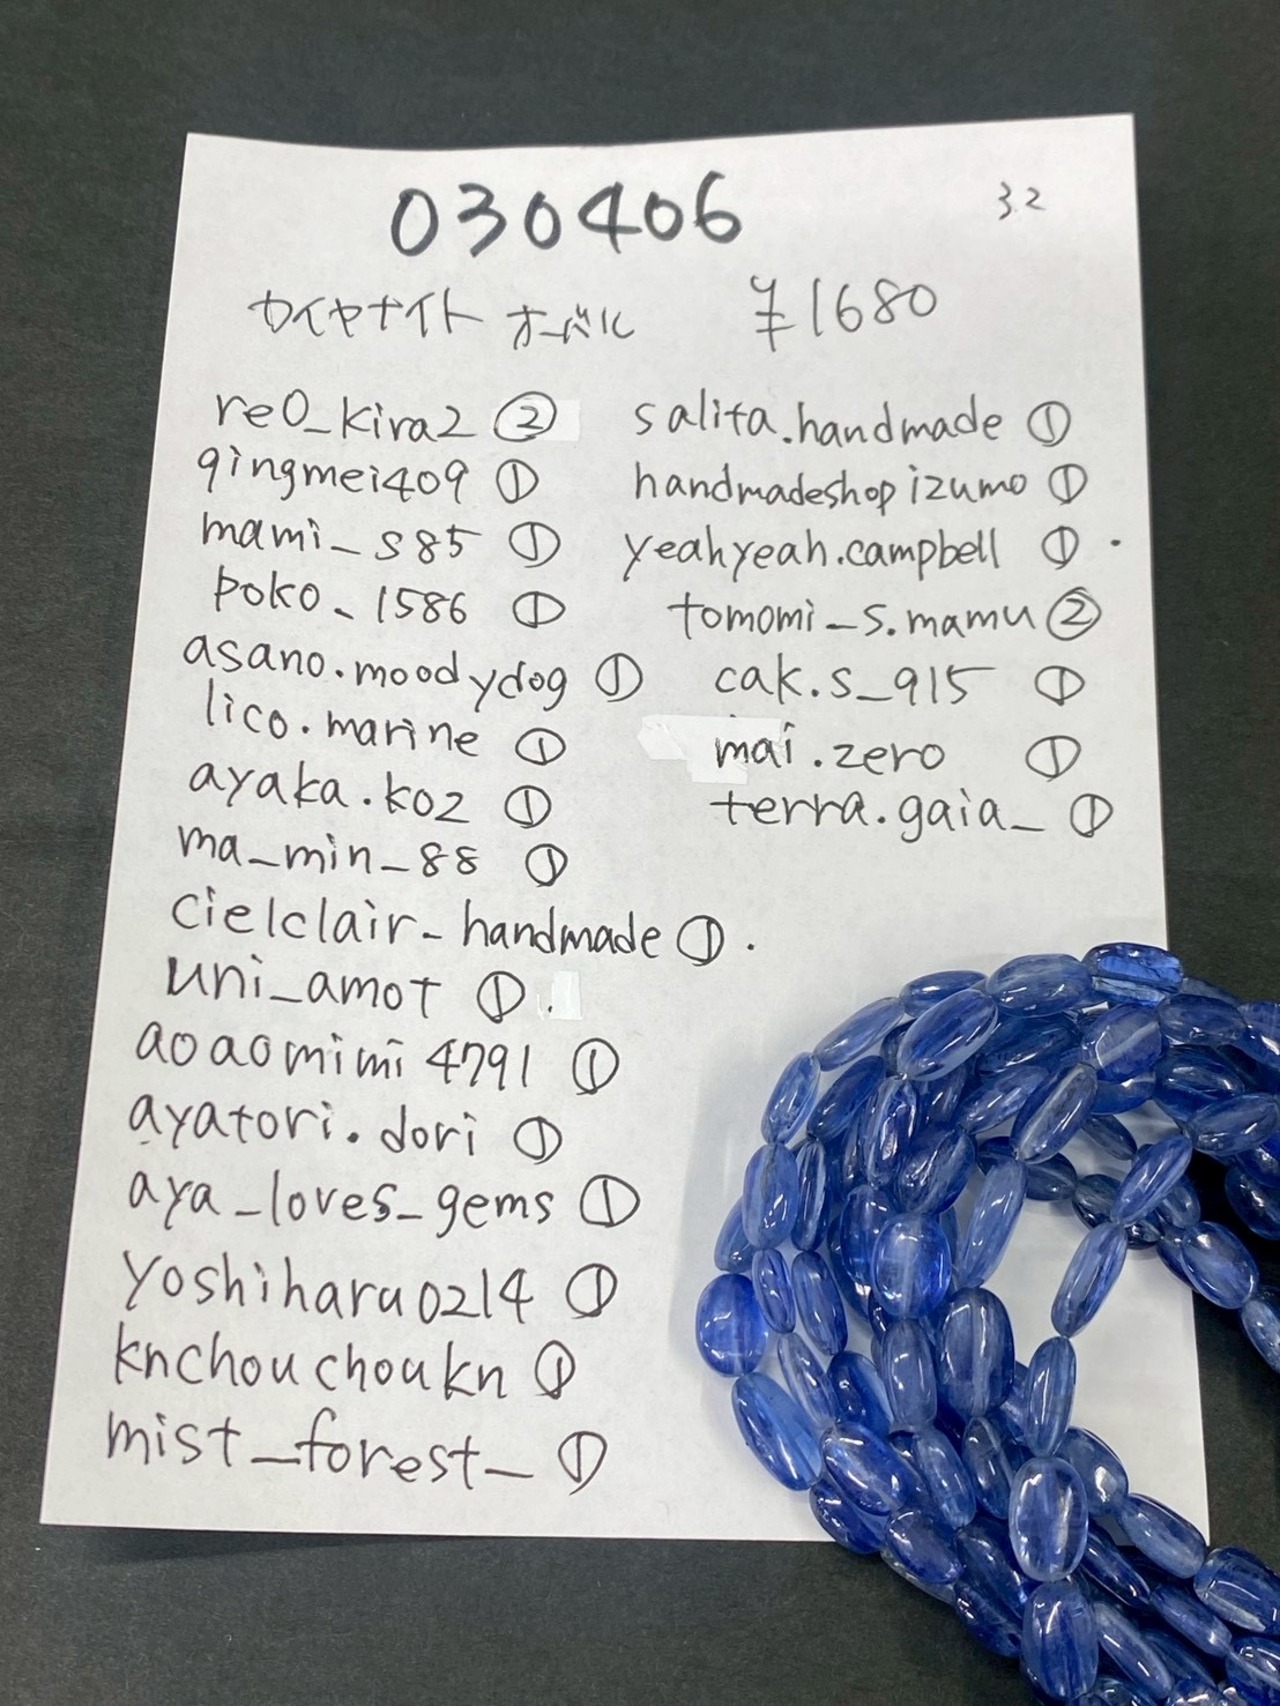 030406
3.2
カイヤナイト オーバル ¥1680
re0_kira2 ②
qingmei409 ①
mami_s85 ①
poko_1586 ①
asano.moodydog ①
lico.marine ①
ayaka.k02 ①
ma_min_88 ①
cielclair_handmade ① .
uni_amot ① .
aoaomimi4791 ①
ayatori.dori ①
aya_loves_gems ①
yoshiharu0214 ①
knchouchoukn ①
mist_forest_ ①
salita.handmade ①
handmadeshopizumo ①
yeahyeah.campbell ① ・
tomomi_s.mamu ②
cak.s_915 ①
mai.zero ①
terra.gaia_ ①